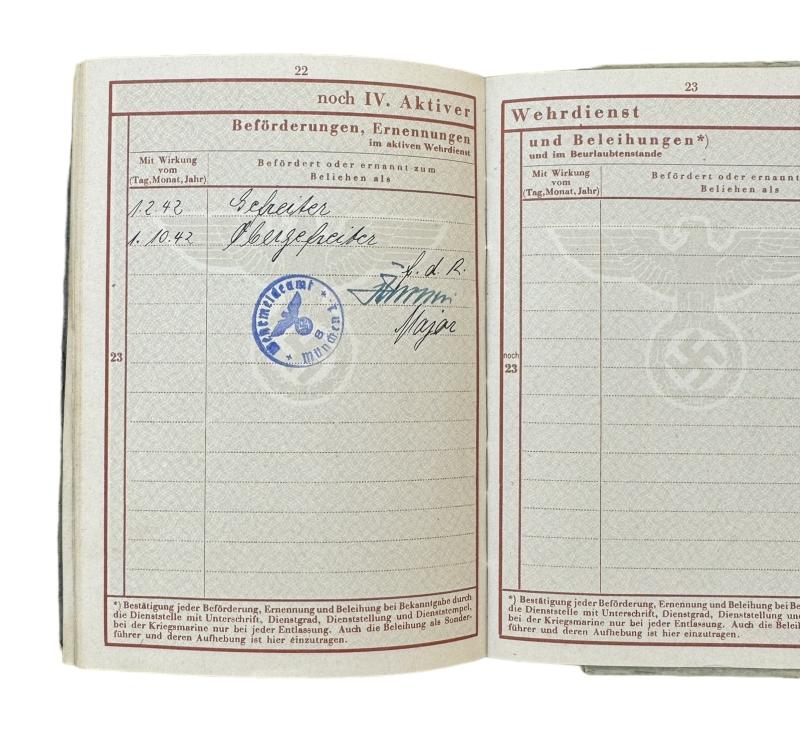 22
noch IV. Aktiver
Beförderungen, Ernennungen
im aktiven Wehrdienst
Mit Wirkung
vom
(Tag, Monat, Jahr)
Befördert oder ernannt zum
Beliehen als
1.2.42 Gefreiter
1.10.42 Obergefreiter
f. d. R.
Major
Wehrmeldeamt * München 8 *
23
*) Bestätigung jeder Beförderung, Ernennung und Beleihung bei Bekanntgabe durch
die Dienststelle mit Unterschrift, Dienstgrad, Dienststellung und Dienststempel,
bei der Kriegsmarine nur bei jeder Entlassung. Auch die Beleihung als Sonder-
führer und deren Aufhebung ist hier einzutragen.
23
Wehrdienst
und Beleihungen*)
und im Beurlaubtenstande
Mit Wirkung
vom
(Tag, Monat, Jahr)
Befördert oder ernannt
Beliehen als
noch
23
*) Bestätigung jeder Beförderung, Ernennung und Beleihung bei Be
die Dienststelle mit Unterschrift, Dienstgrad, Dienststellung und
bei der Kriegsmarine nur bei jeder Entlassung. Auch die Belei
führer und deren Aufhebung ist hier einzutragen.